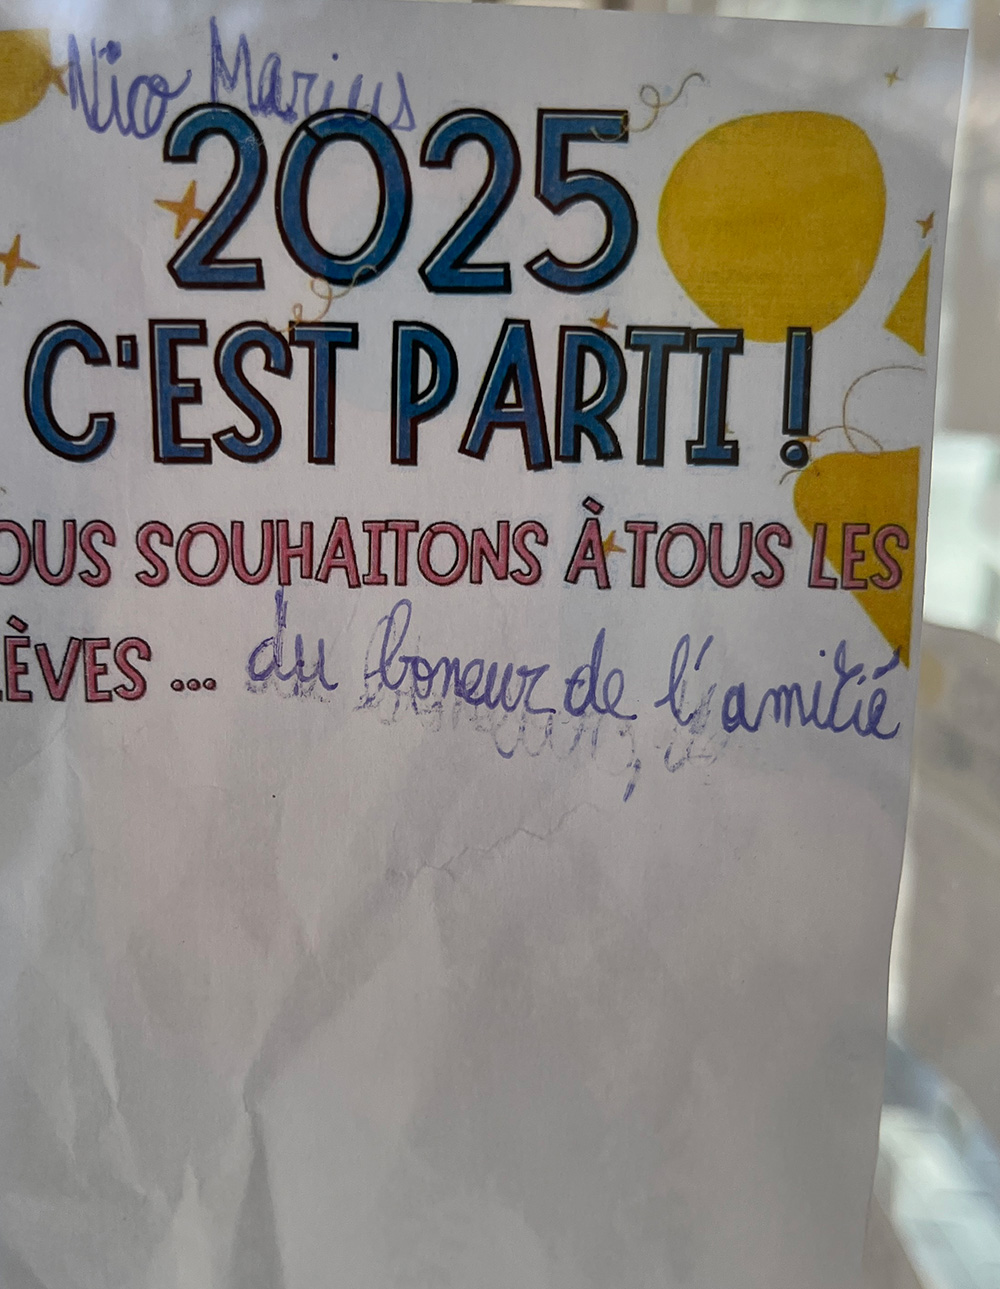 Nico Marius
2025
C'EST PARTI !
OUS SOUHAITONS À TOUS LES
LÈVES ... du boneur de l'amitié